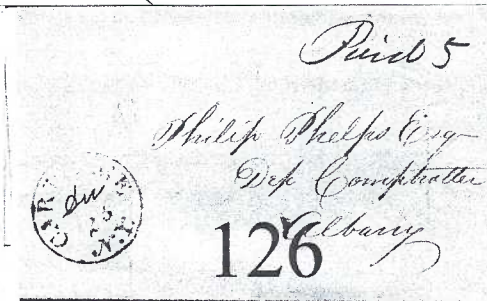 Paid 5
Philip Phelps Esq
Dep Comptroller
Albany
25
N.Y.
126